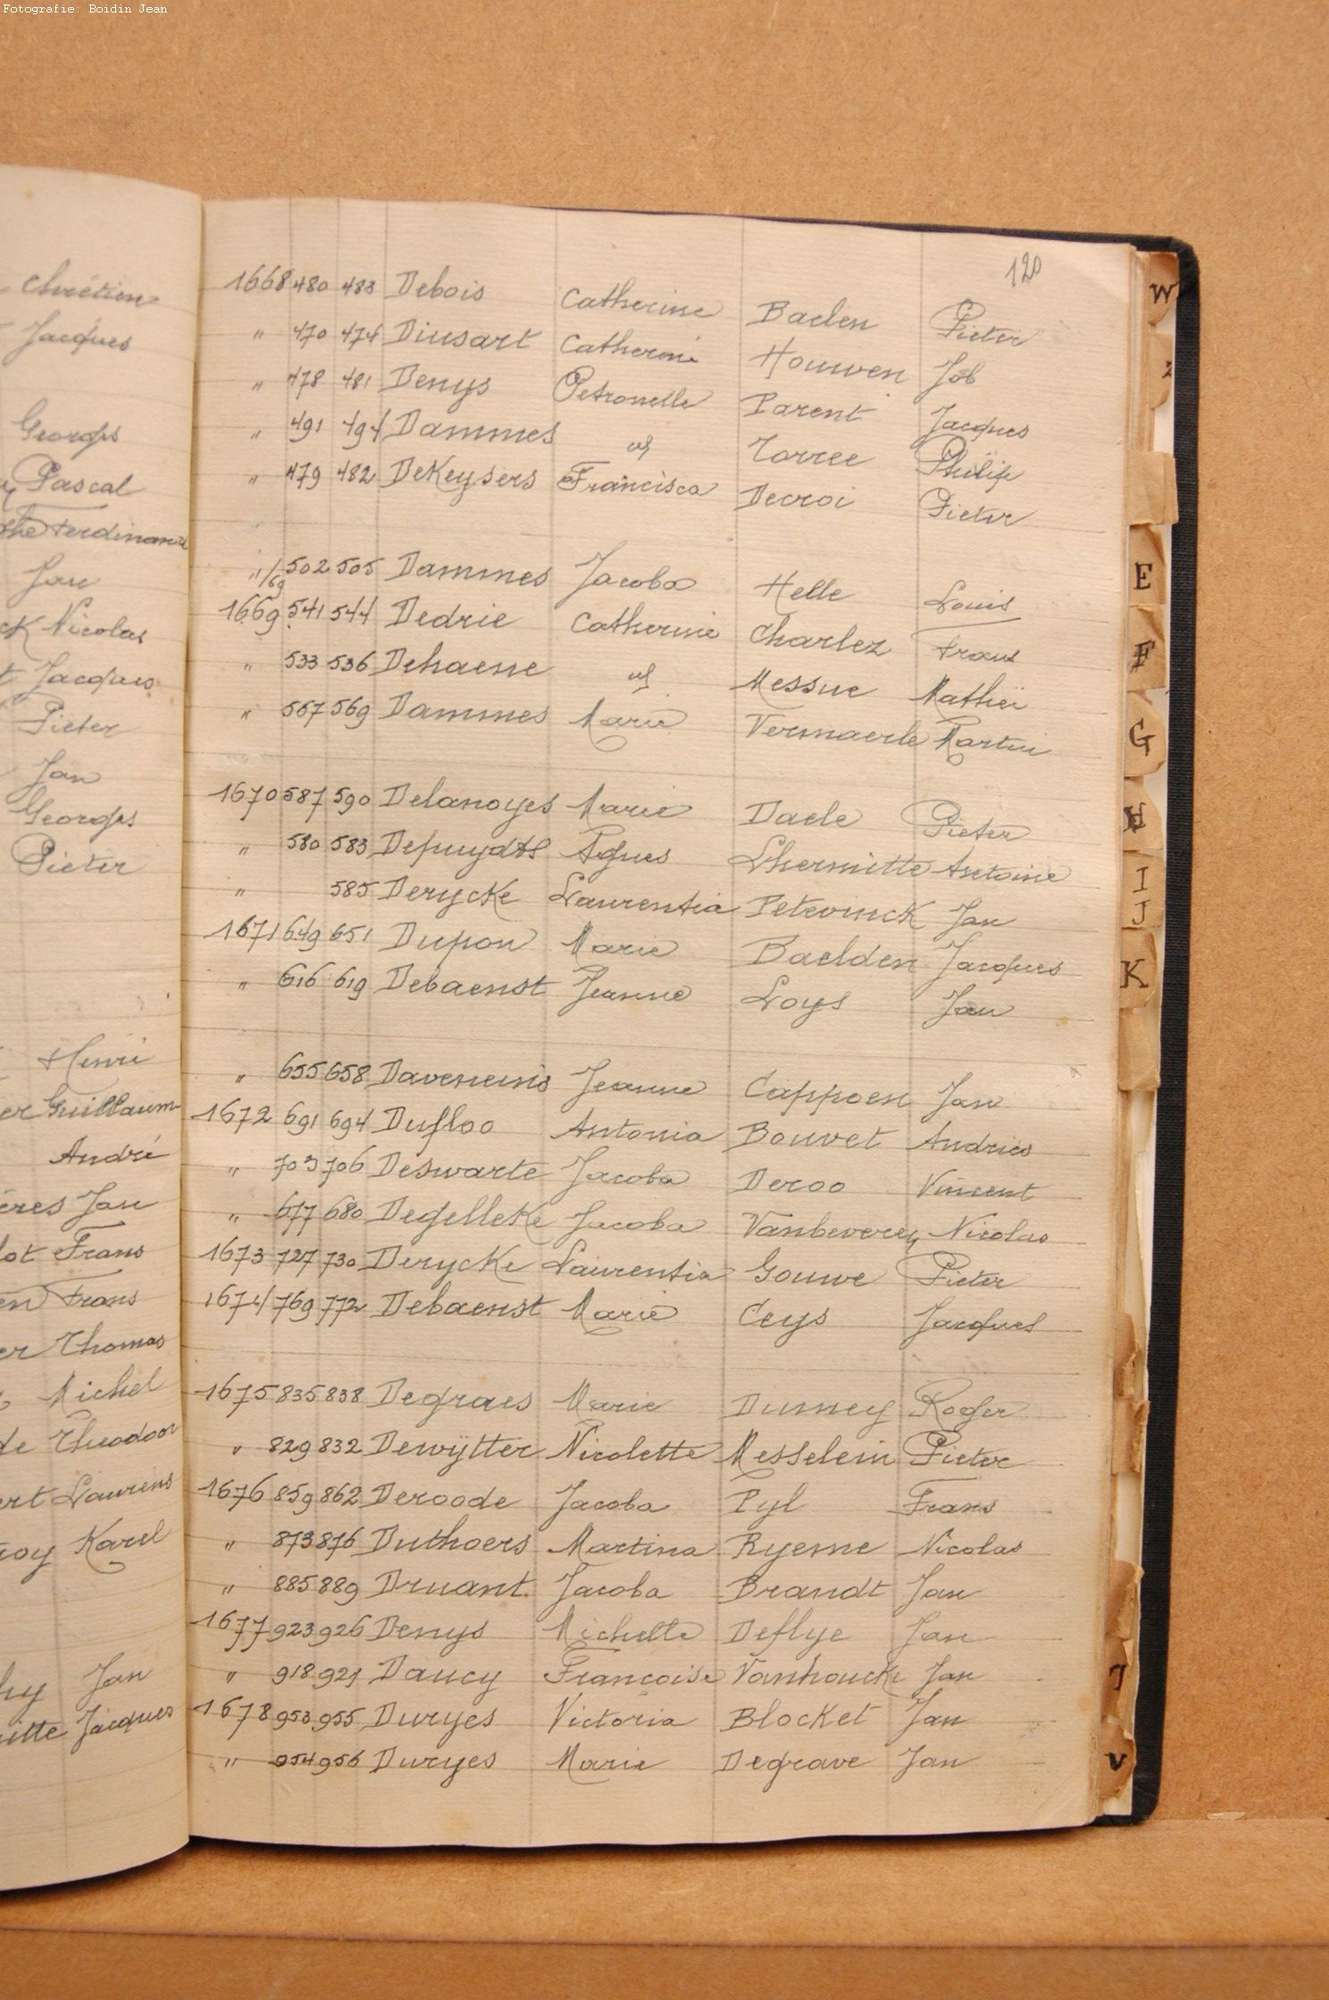 Fotografie: Boidin Jean
Chrétien
Jacques
Georges
Pascal
Ferdinand
Jan
ck Nicolas
t Jacques
Pieter
Jan
Georges
Pieter
Henri
er Guillaum
André
ères Jan
lot Frans
en Frans
er Thomas
Michel
de Theodoor
ert Laurens
roy Karel
hy Jan
itte Jacques
120
1668 480 483 Debois Catherine Baelen Pieter
" 470 474 Diusart Catherine Houwen Job
" 478 481 Denys Petronelle Parent Jacques
" 491 494 Dammes Torree Philip
" 479 482 DeKeysers Francisca Decroi Pieter
"/69 502 505 Dammes Jacoba Helle Louis
1669 541 544 Dedrie Catherine Charlez Frans
" 533 536 Dehaene Messue Mathieï
" 567 569 Dammes Marie Vermaerle Martin
1670 587 590 Delanoyes Marie Daele Pieter
" 580 583 Depuydts Agnes Lhermitte Antoine
" 585 Derycke Laurentia Petevinck Jan
1671 649 651 Dupon Marie Baelden Jacques
" 616 619 Debaenst Jeanne Loys Jan
" 655 658 Daveneins Jeanne Cappoen Jan
1672 691 694 Dufloo Antonia Bouvet Andries
" 703 706 Deswarte Jacoba Deroo Vincent
" 677 680 Degelleke Jacoba Vanbeveren Nicolas
1673 727 730 Derycke Laurentia Gouwe Pieter
1674 769 772 Debaenst Marie Ceys Jacques
1675 835 838 Degraes Marie Dumey Roger
" 829 832 Dewÿtter Nicolette Messelein Pieter
1676 859 862 Deroode Jacoba Pyl Frans
" 873 876 Duthoers Martina Ryeme Nicolas
" 885 889 Druant Jacoba Brandt Jan
1677 923 926 Denys Michelle Deflye Jan
" 918 921 Daucy Francoise Vanhoucke Jan
1678 953 955 Duryes Victoria Blocket Jan
" 954 956 Duryes Marie Degrave Jan
W
Z
E
F
G
H
I
J
K
V